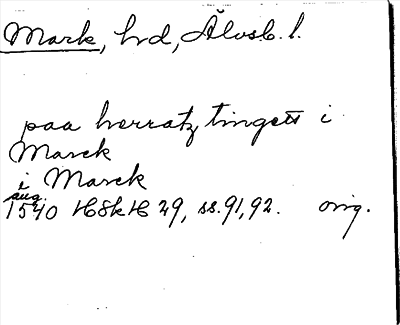 Mark, hd, Älvsb. l.
paa herratz tingett i
Marck
i Marck
aug.
1540 HSkH 29, ss. 91, 92. orig.